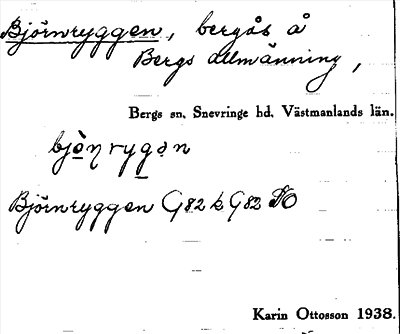 Björnryggen, bergås å
Bergs allmänning,
Bergs sn. Snevringe hd. Västmanlands län.
Björnryggen G82 k G82 SO
Karin Ottosson 1938.